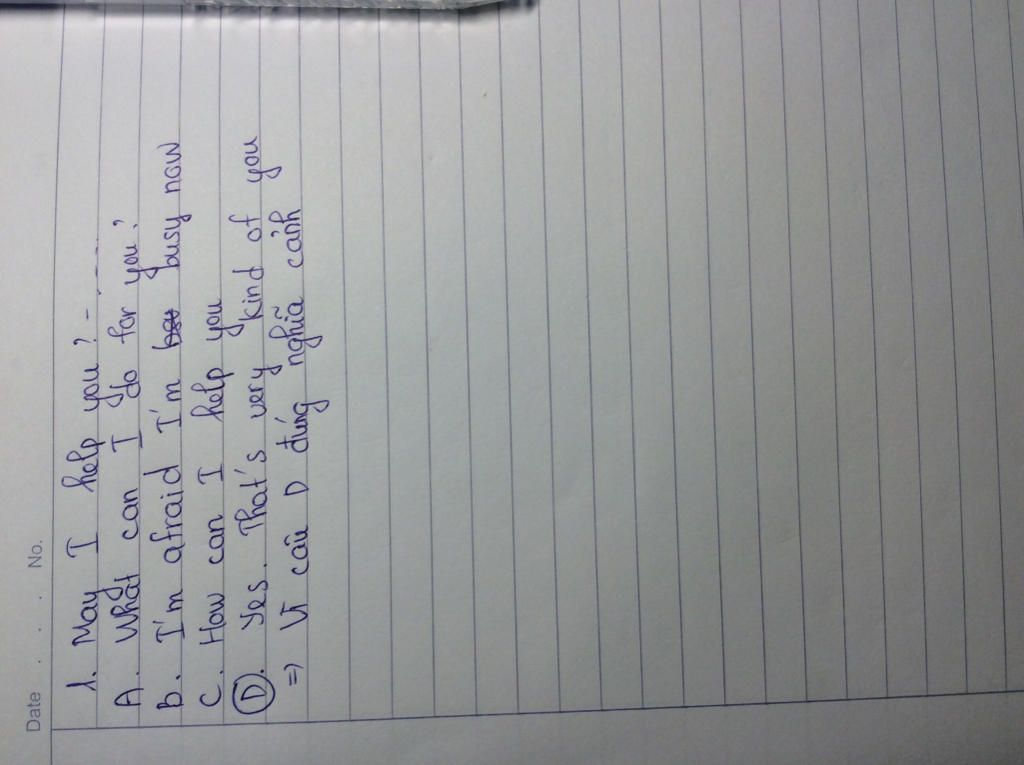 Date . . . . No.
1. May I help you? - - - -
A. What can I do for you?
B. I'm afraid I'm busy now
C. How can I help you
D. Yes. That's very kind of you
=) Vì câu D đúng nghĩa cảnh